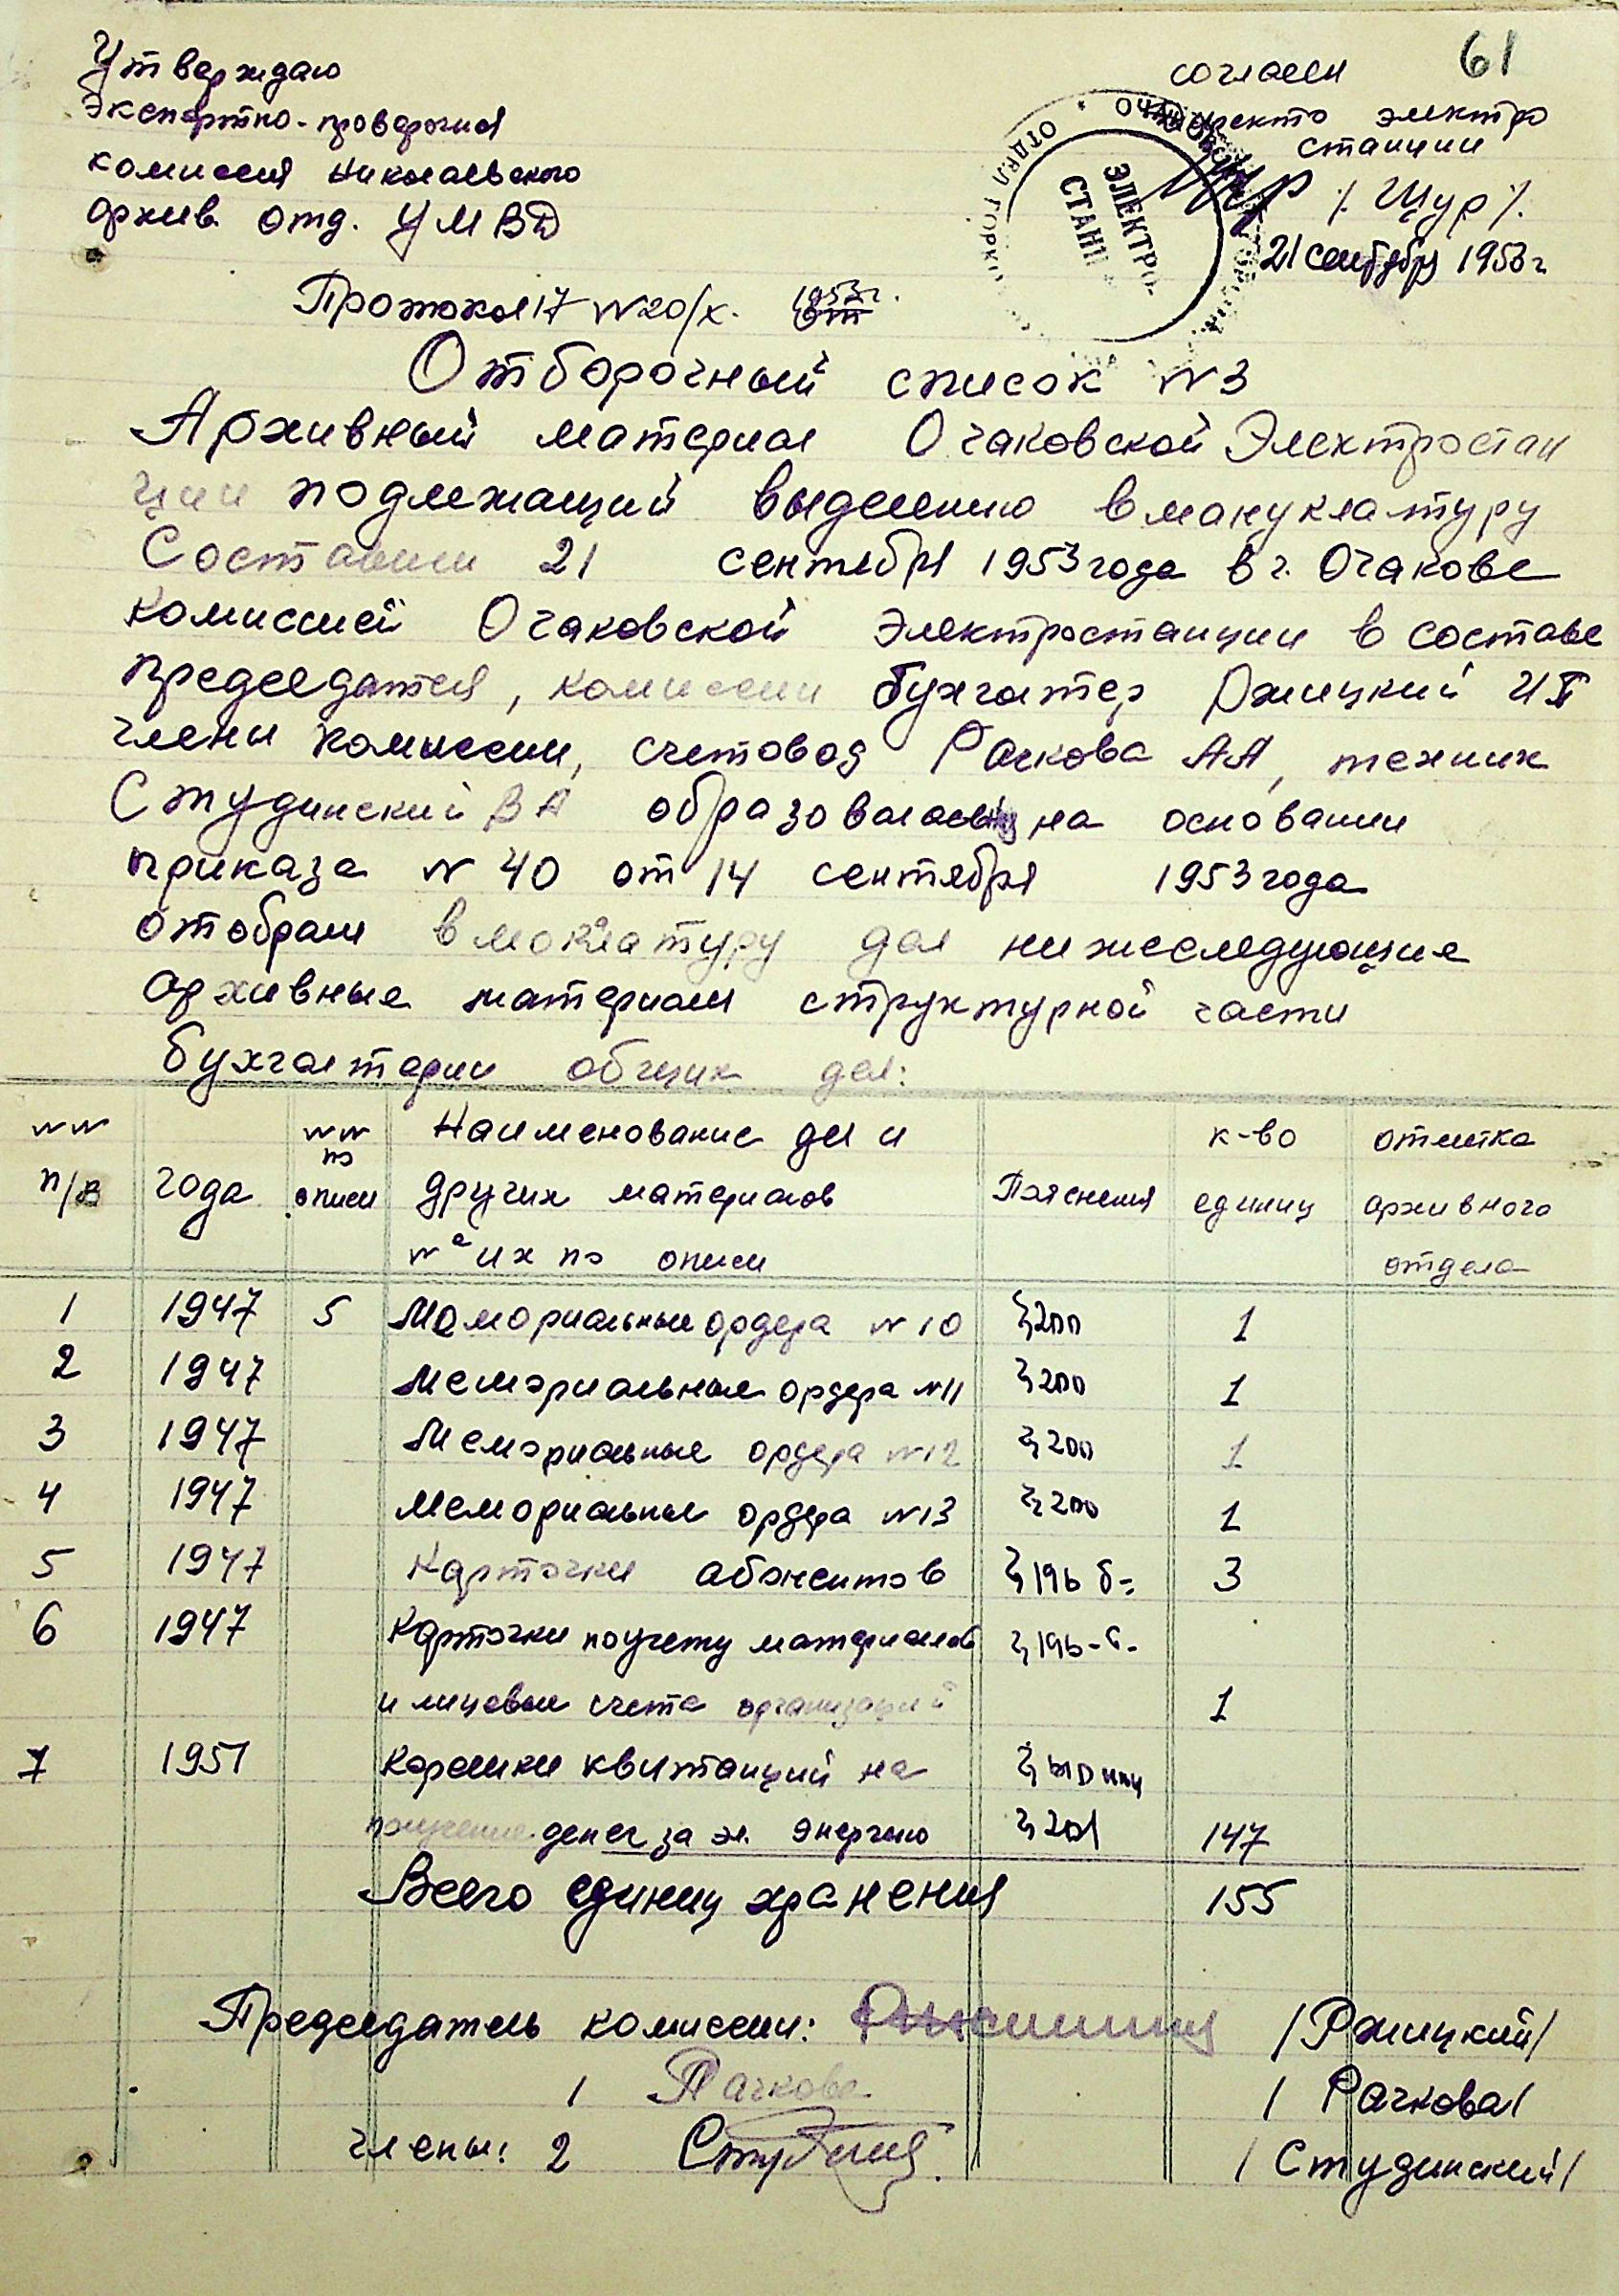 61
Утверждаю
Экспертно-проверочная
комиссия Николаевского
архив. отд. УМВД
согласен
директо электро
станции
/. Щур /.
21 сентября 1953 г
ОЧАКОВСКАЯ
ОТДЕЛ ГОРК
ЭЛЕКТРО-
СТАНЦ
Протокол 17 № 20/X. 1953г.
Отборочный список № 3
Архивный материал Очаковской Электростан
ции подлежащий выделению в макуклатуру
Составлен 21 сентября 1953 года в г. Очакове
комиссией Очаковской электростанции в составе
председателя, комиссии бухгалтер Ржицкий
члены комиссии, счетовод Рачкова АА, техник
Студинский ВА образовалась на основании
приказа № 40 от 14 сентября 1953 года
отобрали в моклатуру дел нижеследующие
архивные материалы структурной части
бухгалтерии общих дел:
№№ п/п
года
№№ по описи
Наименование дел и других материалов № их по описи
Пояснения
к-во единиц
отметка архивного отдела
1 1947 5 Мемориальные ордера № 10 § 200 1
2 1947 Мемориальные ордера № 11 § 200 1
3 1947 Мемориальные ордера № 12 § 200 1
4 1947 Мемориальные ордера № 13 § 200 1
5 1947 Карточки абонентов § 196 б- 3
6 1947 Карточки по учету материалов § 196-б-
и лицевые счета организаций 1
7 1951 Корешки квитанций на
получение денег за эл. энергию § 201 147
Всего единиц хранения 155
Председатель комиссии: /Ржицкий/
1 Рачкова / Рачкова/
члены: 2 / Студинский/